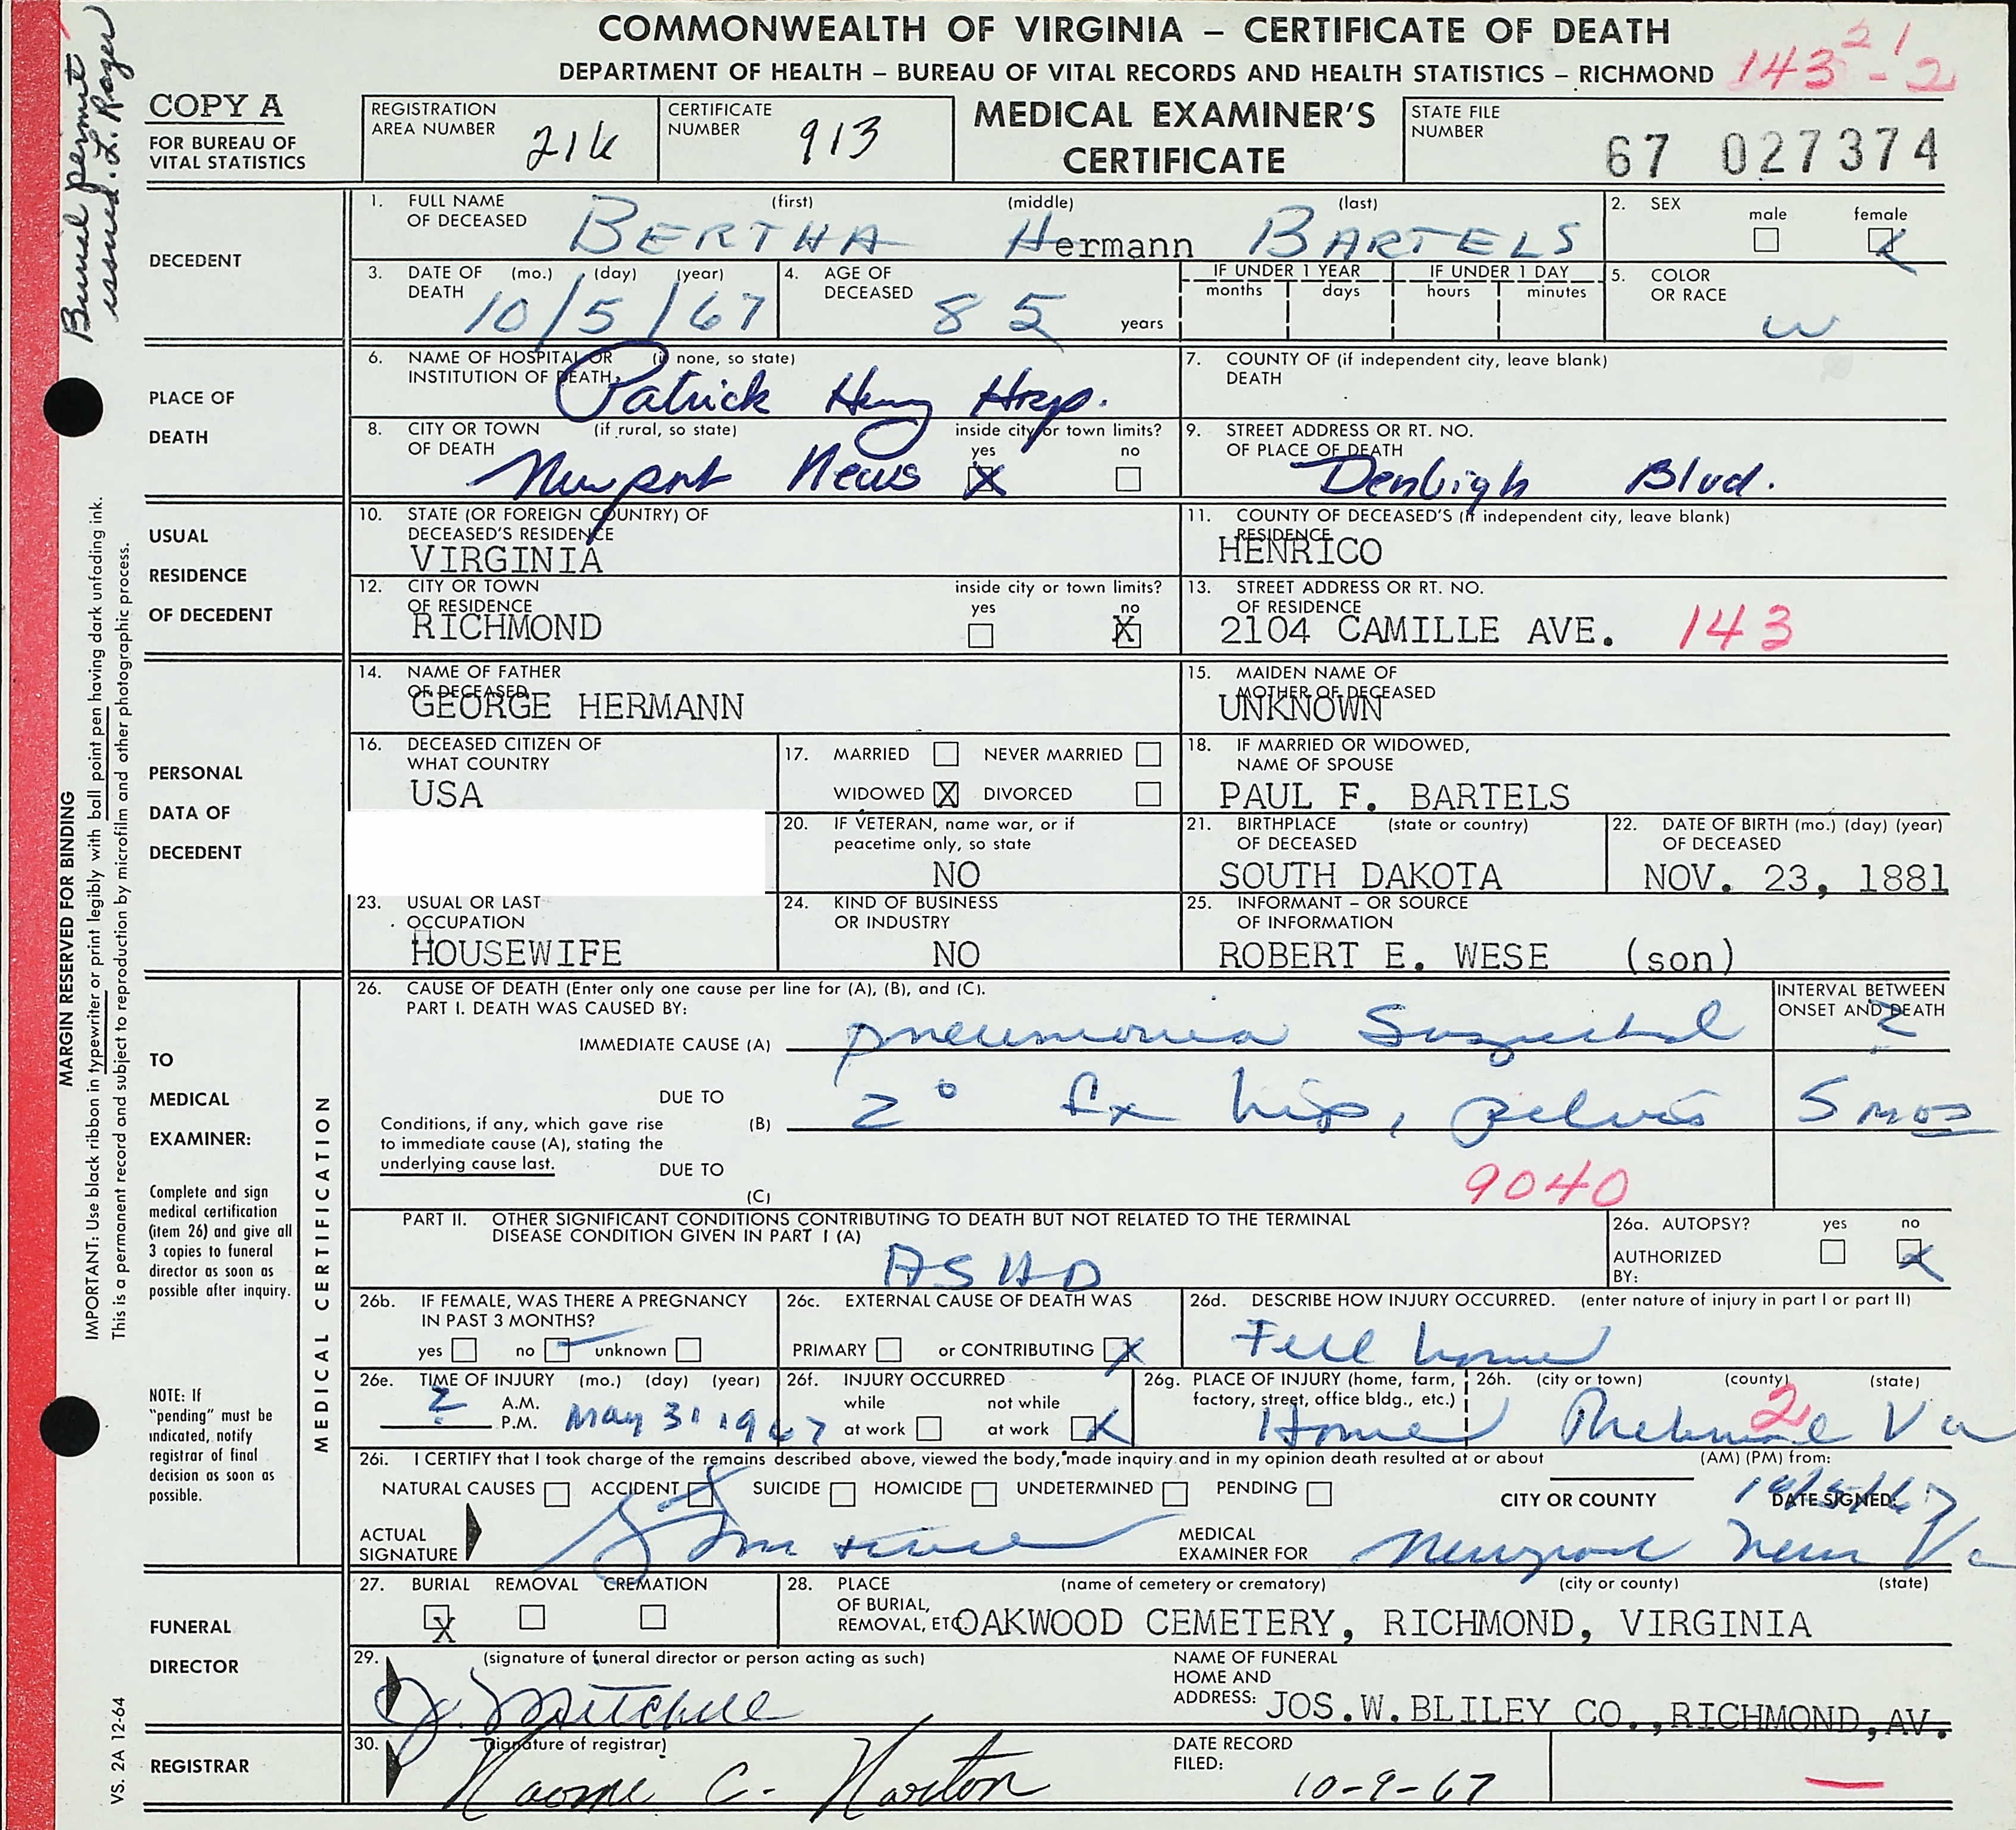 COMMONWEALTH OF VIRGINIA – CERTIFICATE OF DEATH
DEPARTMENT OF HEALTH – BUREAU OF VITAL RECORDS AND HEALTH STATISTICS – RICHMOND
143 21 - 2
Burial permit
issued.
COPY A
FOR BUREAU OF
VITAL STATISTICS
REGISTRATION
AREA NUMBER
21k
CERTIFICATE
NUMBER
913
MEDICAL EXAMINER'S
CERTIFICATE
STATE FILE
NUMBER
67 027374
DECEDENT
1. FULL NAME (first) (middle) (last)
OF DECEASED
BERTHA Hermann BARTELS
2. SEX
male female
X
3. DATE OF (mo.) (day) (year)
DEATH
10/5/67
4. AGE OF
DECEASED
85 years
IF UNDER 1 YEAR IF UNDER 1 DAY
months days hours minutes
5. COLOR
OR RACE
W
PLACE OF
DEATH
6. NAME OF HOSPITAL OR (if none, so state)
INSTITUTION OF DEATH
Patrick Henry Hosp.
7. COUNTY OF (if independent city, leave blank)
DEATH
8. CITY OR TOWN (if rural, so state) inside city or town limits?
OF DEATH yes no
Newport News X
9. STREET ADDRESS OR RT. NO.
OF PLACE OF DEATH
Denbigh Blvd.
USUAL
RESIDENCE
OF DECEDENT
10. STATE (OR FOREIGN COUNTRY) OF
DECEASED'S RESIDENCE
VIRGINIA
11. COUNTY OF DECEASED'S (if independent city, leave blank)
RESIDENCE
HENRICO
12. CITY OR TOWN inside city or town limits?
OF RESIDENCE yes no
RICHMOND X
13. STREET ADDRESS OR RT. NO.
OF RESIDENCE
2104 CAMILLE AVE. 143
PERSONAL
DATA OF
DECEDENT
14. NAME OF FATHER
OF DECEASED
GEORGE HERMANN
15. MAIDEN NAME OF
MOTHER OF DECEASED
UNKNOWN
16. DECEASED CITIZEN OF
WHAT COUNTRY
USA
17. MARRIED NEVER MARRIED
WIDOWED X DIVORCED
18. IF MARRIED OR WIDOWED,
NAME OF SPOUSE
PAUL F. BARTELS
20. IF VETERAN, name war, or if
peacetime only, so state
NO
21. BIRTHPLACE (state or country)
OF DECEASED
SOUTH DAKOTA
22. DATE OF BIRTH (mo.) (day) (year)
OF DECEASED
NOV. 23, 1881
23. USUAL OR LAST
OCCUPATION
HOUSEWIFE
24. KIND OF BUSINESS
OR INDUSTRY
NO
25. INFORMANT – OR SOURCE
OF INFORMATION
ROBERT E. WESE (son)
MARGIN RESERVED FOR BINDING
IMPORTANT: Use black ribbon in typewriter or print legibly with ball point pen having dark unfading ink.
This is a permanent record and subject to reproduction by microfilm and other photographic process.
VS. 2A 12-64
TO
MEDICAL
EXAMINER:
Complete and sign
medical certification
(item 26) and give all
3 copies to funeral
director as soon as
possible after inquiry.
NOTE: If
"pending" must be
indicated, notify
registrar of final
decision as soon as
possible.
MEDICAL CERTIFICATION
26. CAUSE OF DEATH (Enter only one cause per line for (A), (B), and (C).
PART I. DEATH WAS CAUSED BY:
INTERVAL BETWEEN
ONSET AND DEATH
IMMEDIATE CAUSE (A) pneumonia ?
DUE TO
Conditions, if any, which gave rise
to immediate cause (A), stating the
underlying cause last.
(B) 2° fx hip, pelvis 5 mos
DUE TO
(C)
9040
PART II. OTHER SIGNIFICANT CONDITIONS CONTRIBUTING TO DEATH BUT NOT RELATED TO THE TERMINAL
DISEASE CONDITION GIVEN IN PART I (A)
ASHD
26a. AUTOPSY? yes no
AUTHORIZED X
BY:
26b. IF FEMALE, WAS THERE A PREGNANCY
IN PAST 3 MONTHS?
yes no unknown
26c. EXTERNAL CAUSE OF DEATH WAS
PRIMARY or CONTRIBUTING X
26d. DESCRIBE HOW INJURY OCCURRED. (enter nature of injury in part I or part II)
Fell home
26e. TIME OF INJURY (mo.) (day) (year)
? A.M.
P.M. May 31 1967
26f. INJURY OCCURRED
while not while
at work at work X
26g. PLACE OF INJURY (home, farm,
factory, street, office bldg., etc.)
Home
26h. (city or town) (county) (state)
2
Va
26i. I CERTIFY that I took charge of the remains described above, viewed the body, made inquiry and in my opinion death resulted at or about (AM) (PM) from:
NATURAL CAUSES ACCIDENT X SUICIDE HOMICIDE UNDETERMINED PENDING
CITY OR COUNTY
DATE SIGNED:
10/5/67
ACTUAL
SIGNATURE
MEDICAL
EXAMINER FOR
Newport News Va
FUNERAL
DIRECTOR
27. BURIAL REMOVAL CREMATION
X
28. PLACE (name of cemetery or crematory) (city or county) (state)
OF BURIAL,
REMOVAL, ETC.
OAKWOOD CEMETERY, RICHMOND, VIRGINIA
29. (signature of funeral director or person acting as such)
J. Mitchell
NAME OF FUNERAL
HOME AND
ADDRESS: JOS.W.BLILEY CO.,RICHMOND,AV.
REGISTRAR
30. (signature of registrar)
Naomi C. Norton
DATE RECORD
FILED:
10-9-67